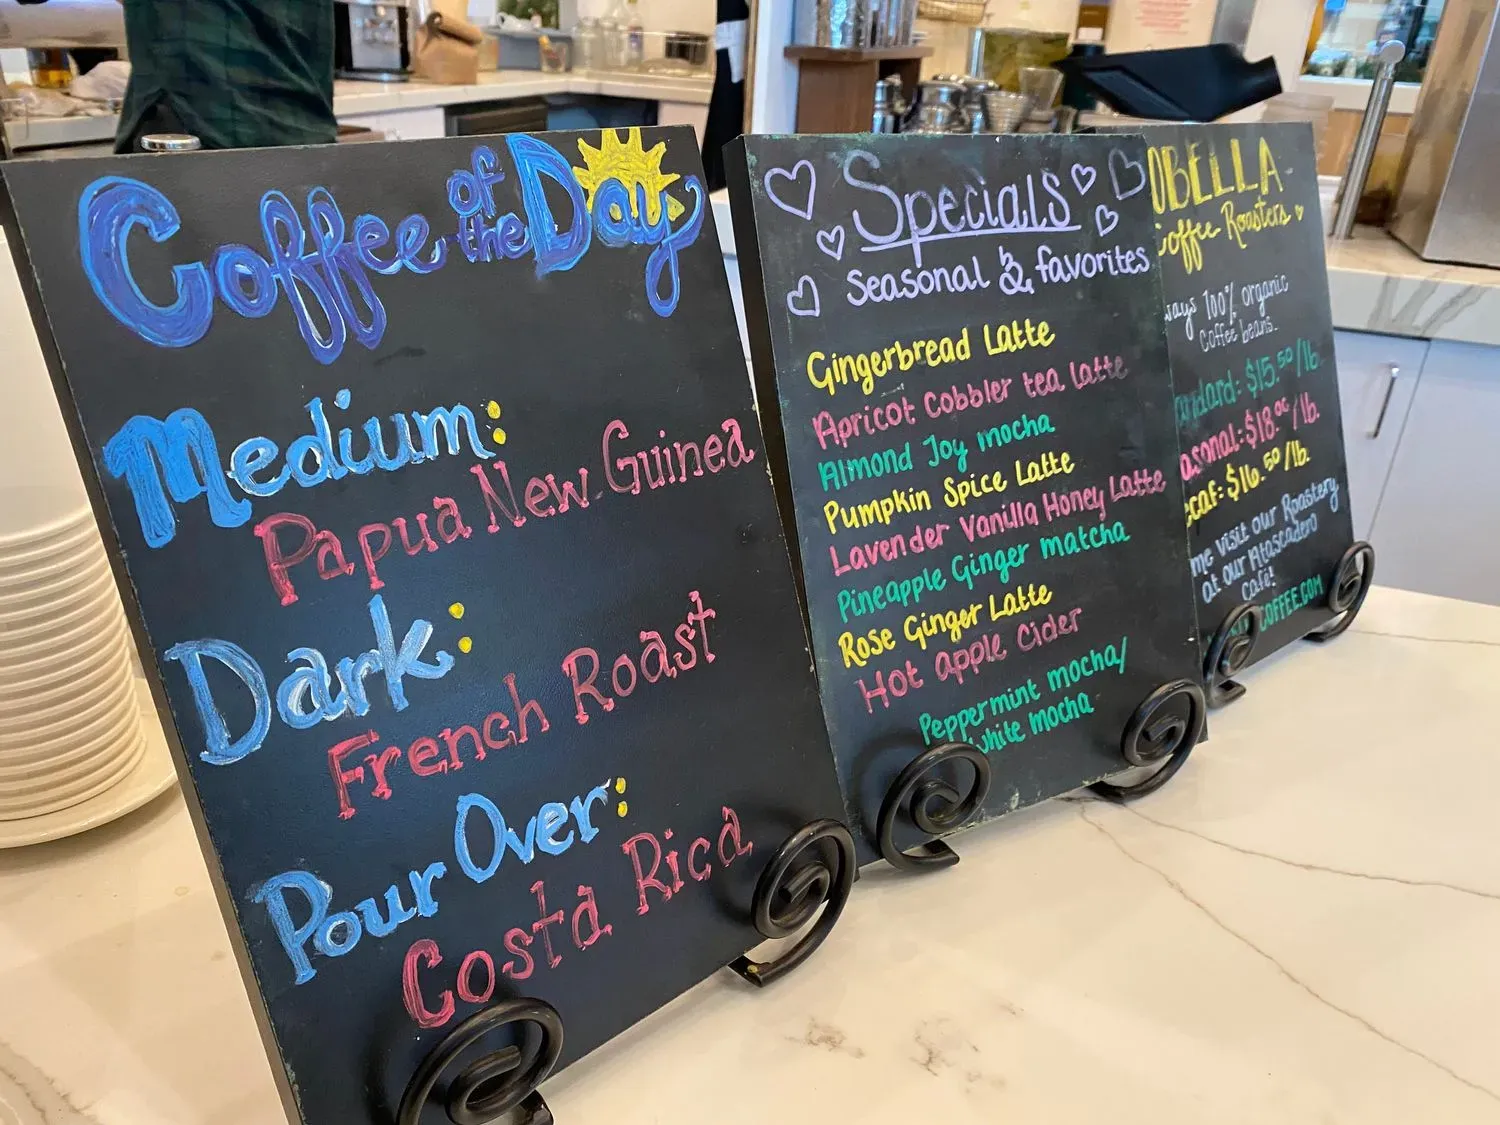 Coffee of the Day
Medium:
Papua New Guinea
Dark:
French Roast
Pour Over:
Costa Rica
Specials
seasonal & favorites
Gingerbread Latte
Apricot Cobbler tea latte
Almond Joy mocha
Pumpkin Spice Latte
Lavender Vanilla Honey Latte
Pineapple Ginger matcha
Rose Ginger Latte
Hot apple Cider
Peppermint mocha/
white mocha
OBELLA
Coffee Roasters
ways 100% organic
Coffee beans
andard: $15.50/lb.
asonal: $18.00/lb.
ecaf: $16.50/lb.
me visit our Roastery
at our Atascadero
Café!
COFFEE.COM